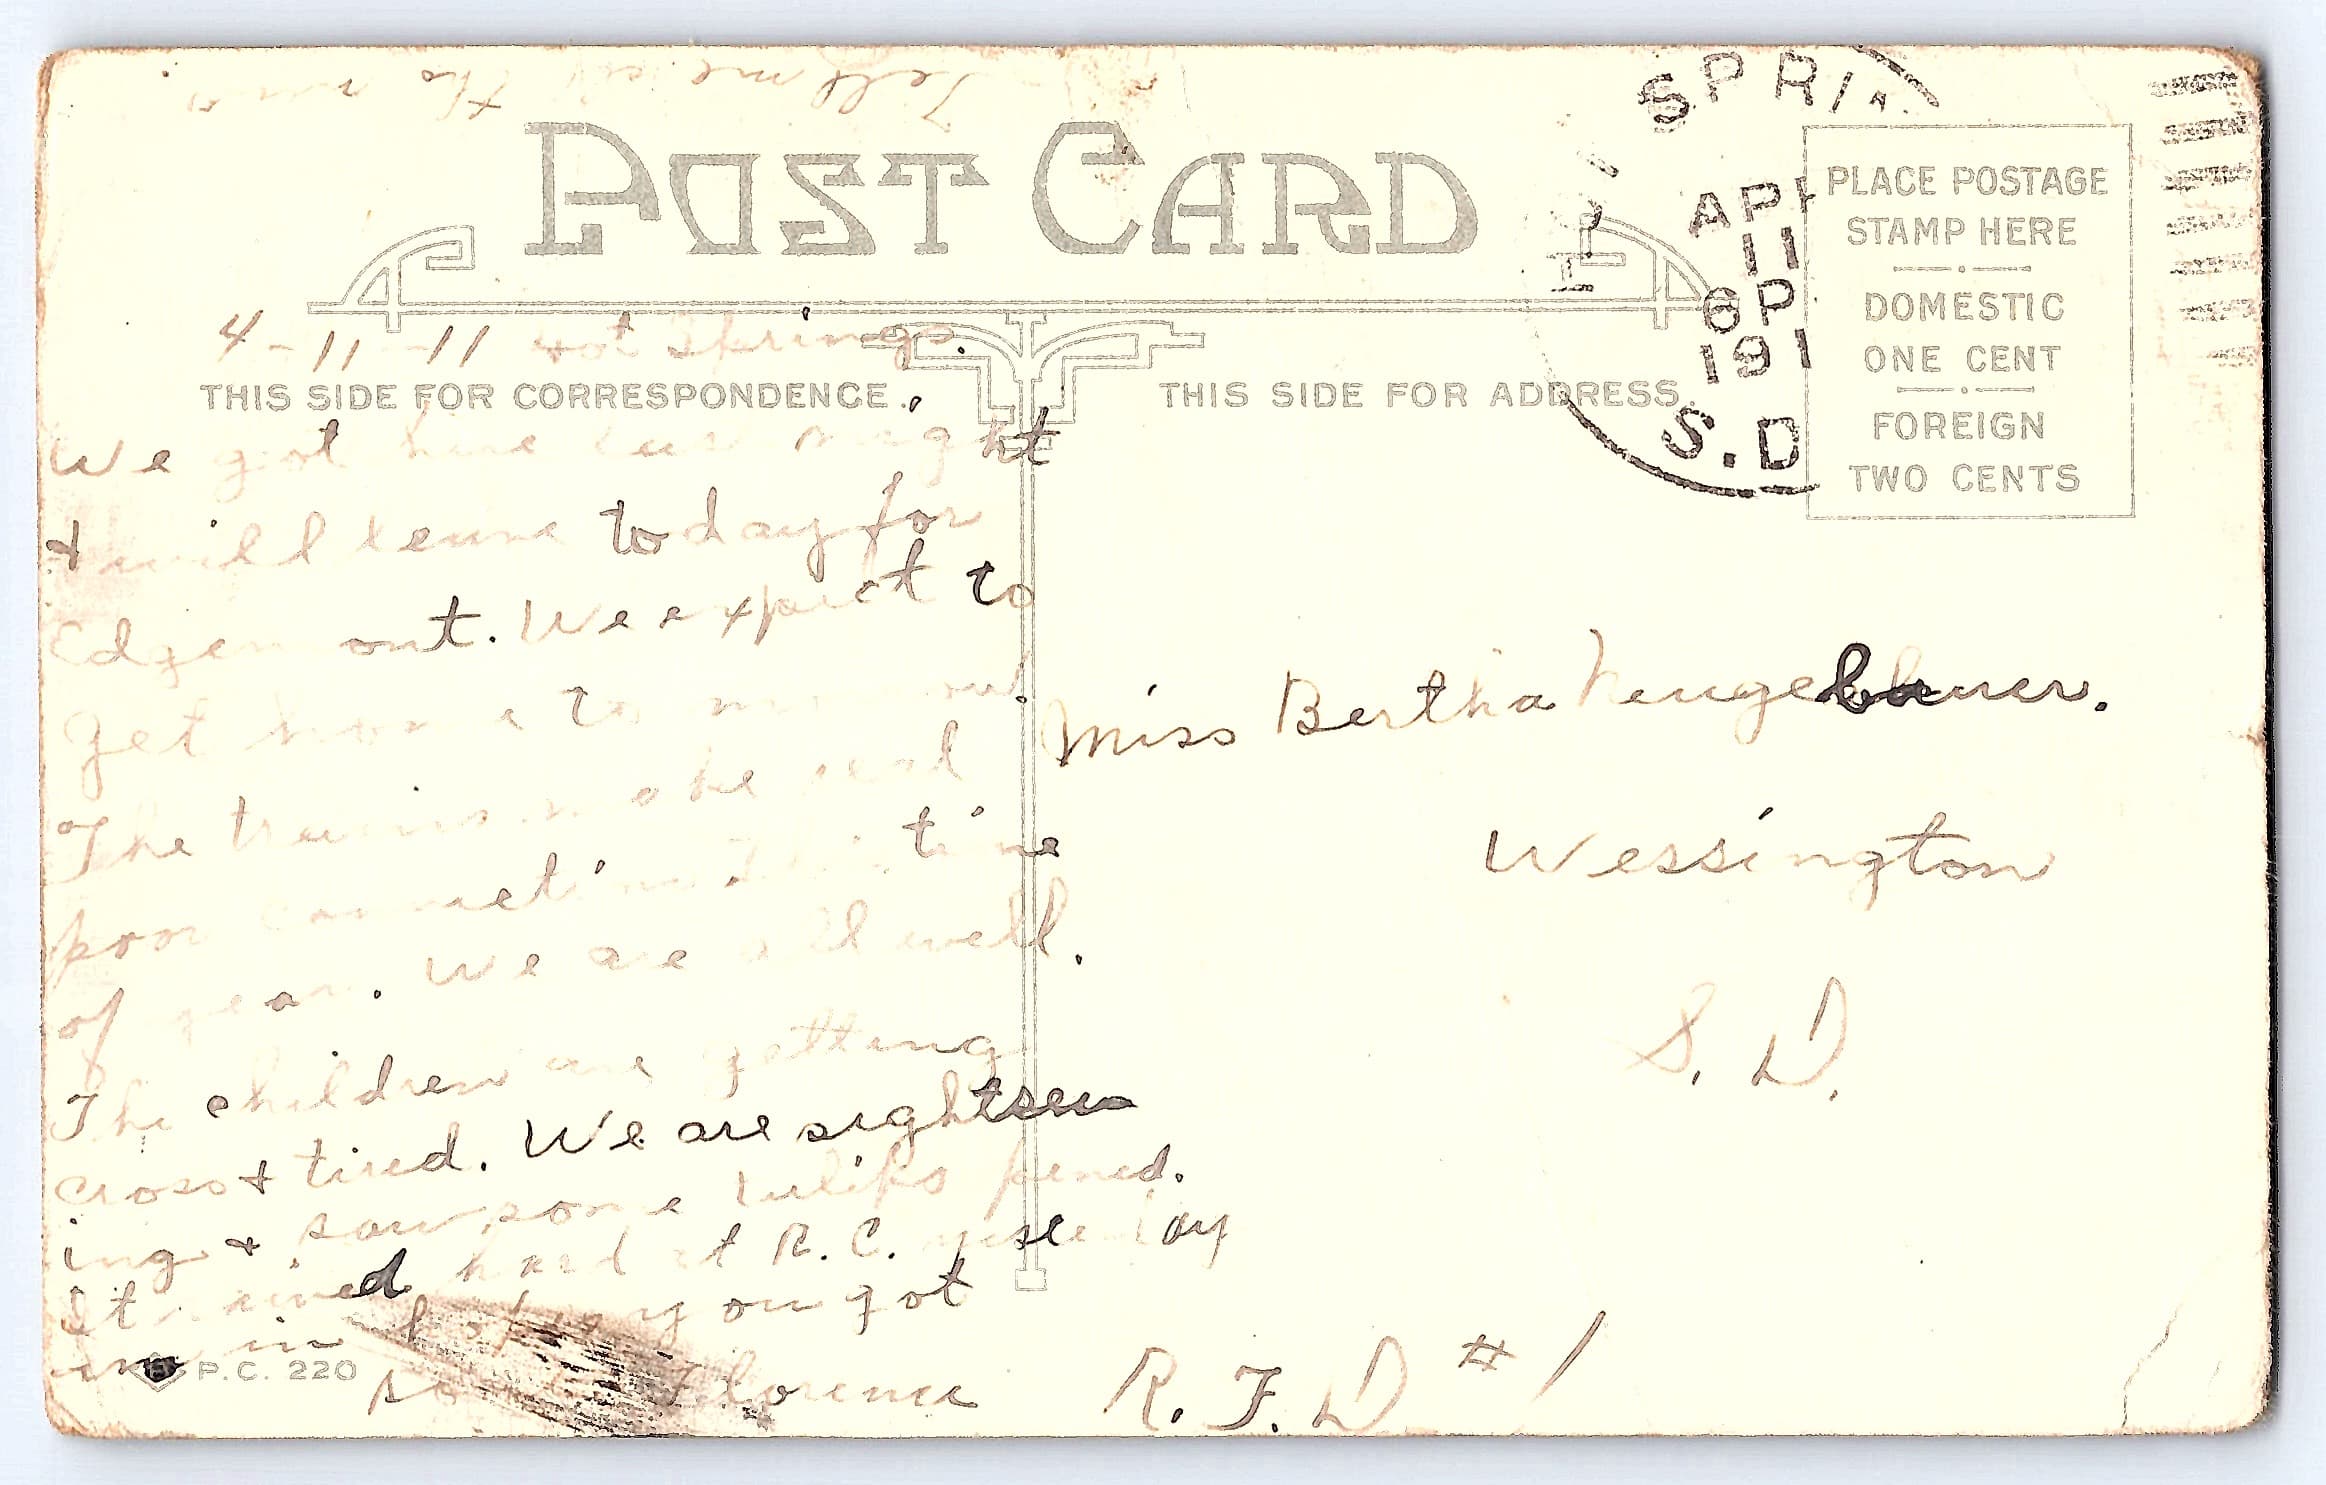 Tell me all the news
POST CARD
SPRIN
APR
11
6P
191
S.D
PLACE POSTAGE
STAMP HERE
DOMESTIC
ONE CENT
FOREIGN
TWO CENTS
4-11-11 Hot Springs.
THIS SIDE FOR CORRESPONDENCE.
THIS SIDE FOR ADDRESS.
We got here last night
+ will leave today for
Edgemont. We expect to
get home
The trains make real
poor connection this time
of year. We are all well.
The children are getting
cross + tired. We are sightsee
ing + saw some tulips
It rained hard at R. C. yesterday
you got
Florence
P.C. 220
Miss Bertha Neugebauer.
Wessington
S. D.
R. F. D #1